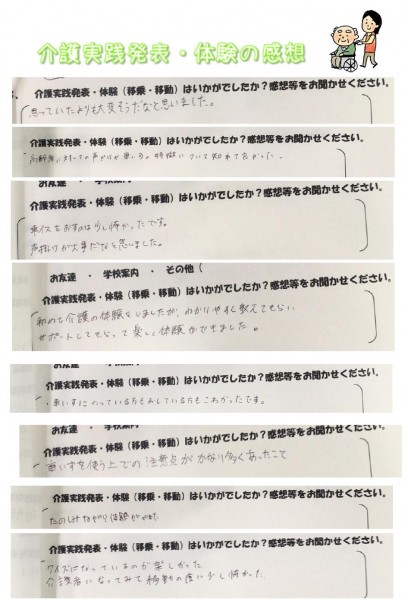 介護実践発表・体験の感想
介護実践発表・体験（移乗・移動）はいかがでしたか？感想等をお聞かせください。
思っていたよりも大変そうだなと思いました。
介護実践発表・体験（移乗・移動）はいかがでしたか？感想等をお聞かせください。
高齢者に対しての声かけや車いすの
について知れて良かった。
お友達 ・ 学校案内
介護実践発表・体験（移乗・移動）はいかがでしたか？感想等をお聞かせください。
車イスをおすのは少し怖かったです。
声掛けが大事だなと思いました。
お友達 ・ 学校案内 ・ その他（
介護実践発表・体験（移乗・移動）はいかがでしたか？感想等をお聞かせください。
初めて介護の体験をしましたが、わかりやすく教えてもらい
サポートしてもらって楽しく体験ができました。
お友達 ・ 学校案内
介護実践発表・体験（移乗・移動）はいかがでしたか？感想等をお聞かせください。
・車いすにのっている方もおしている方もこわかったです。
お友達 ・ 学校案内 ・ その他（
介護実践発表・体験（移乗・移動）はいかがでしたか？感想等をお聞かせください。
車いすを使う上での注意点がかなり多くあったこと
介護実践発表・体験（移乗・移動）はいかがでしたか？感想等をお聞かせください。
たのしみながら体験ができた
介護実践発表・体験（移乗・移動）はいかがでしたか？感想等をお聞かせください。
クイズになっているのが楽しかった
介護者になってみて移動の度に少し怖かった